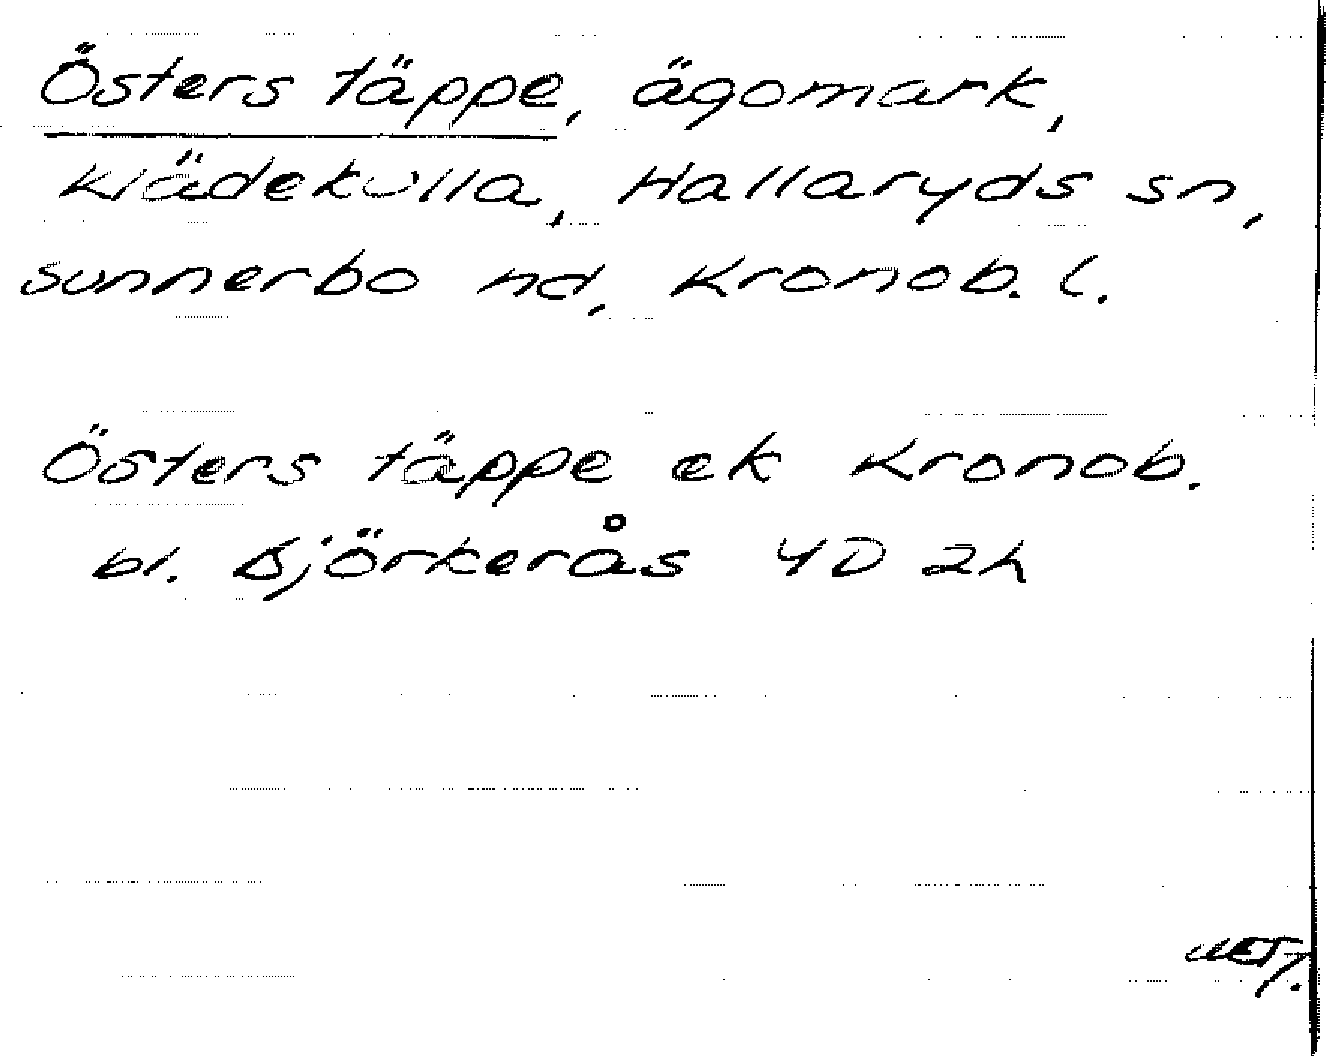 Östers täppe, ägomark,
Klädekulla, Hallaryds sn,
Sunnerbo hd, Kronob. l.
Östers täppe ek Kronob.
bl. Björkerås 4D 2h